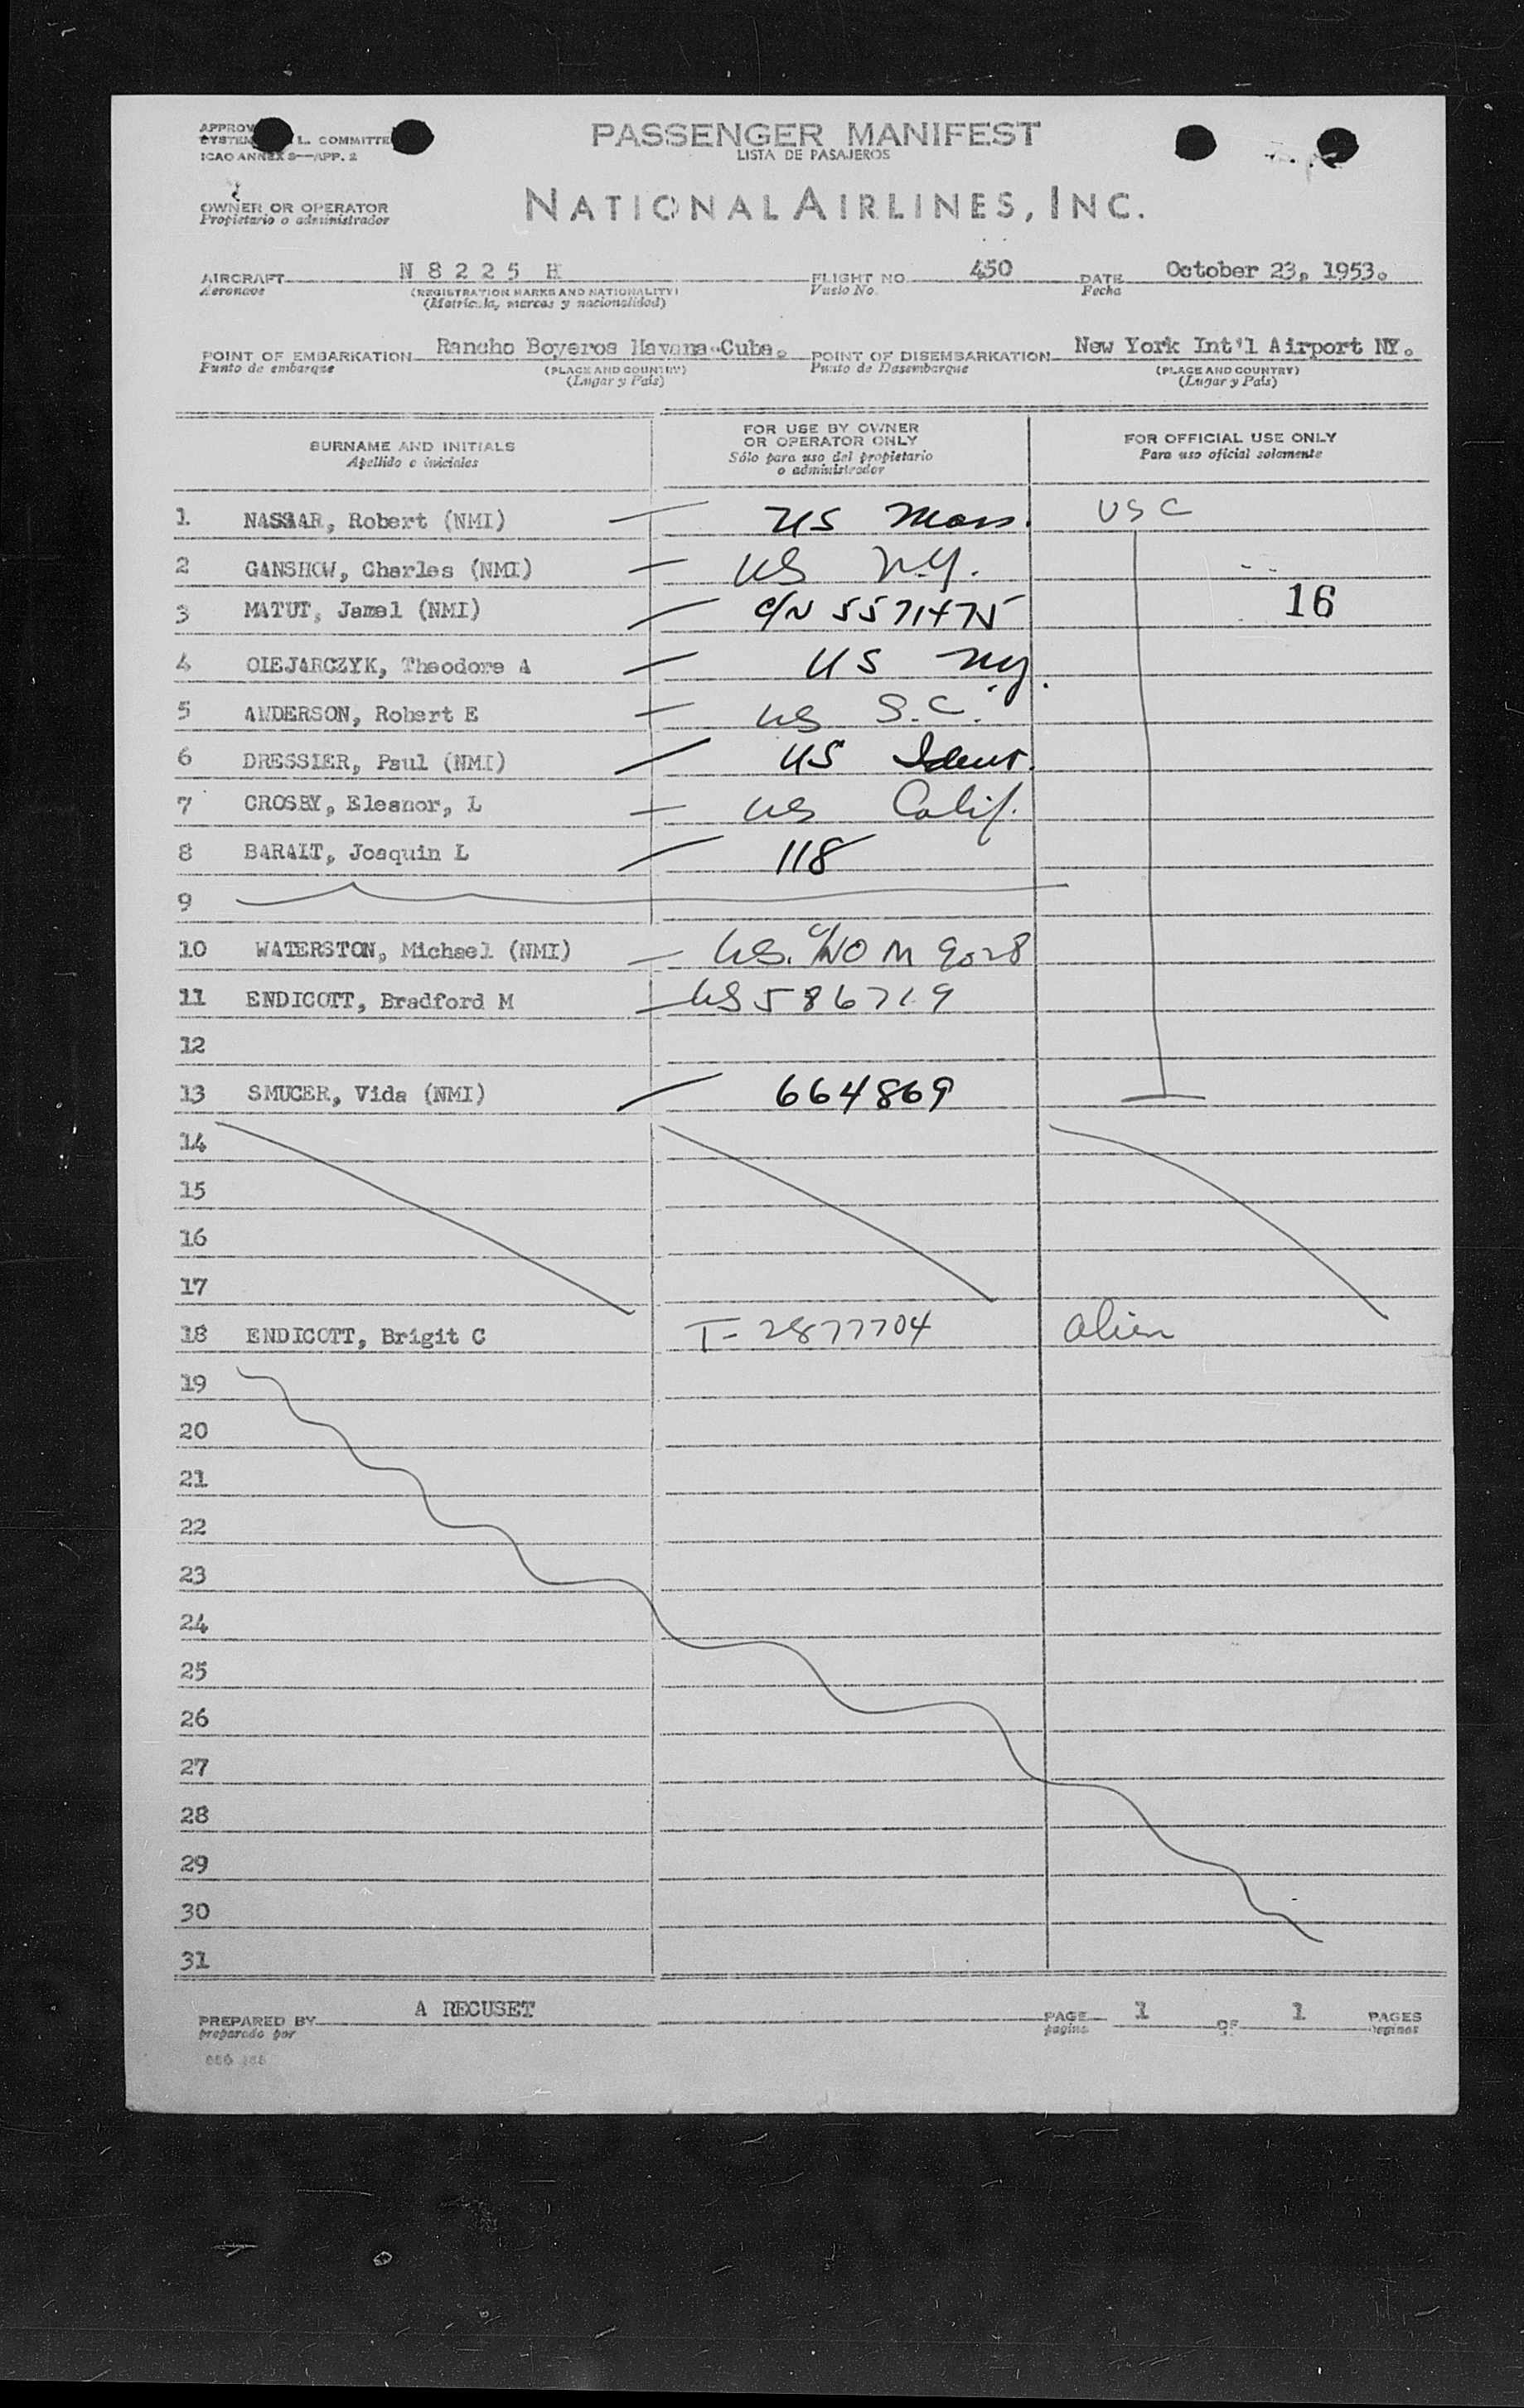 PASSENGER MANIFEST
LISTA DE PASAJEROS
L. COMMITTE
ICAO ANNEX 9—APP. 2
OWNER OR OPERATOR
Propietario o administrador
NATIONAL AIRLINES, INC.
AIRCRAFT N 8 2 2 5 H FLIGHT NO. 450 DATE October 23, 1953.
Aeronave (REGISTRATION MARKS AND NATIONALITY) Vuelo No. Fecha
(Matricula, marcas y nacionalidad)
POINT OF EMBARKATION Rancho Boyeros Havana-Cuba. POINT OF DISEMBARKATION New York Int'l Airport NY.
Punto de embarque (PLACE AND COUNTRY) Punto de Desembarque (PLACE AND COUNTRY)
(Lugar y País) (Lugar y País)
SURNAME AND INITIALS
Apellido e iniciales
FOR USE BY OWNER
OR OPERATOR ONLY
Sólo para uso del propietario
o administrador
FOR OFFICIAL USE ONLY
Para uso oficial solamente
1 NASSAR, Robert (NMI) US Mass. USC
2 GANSHOW, Charles (NMI) US N.Y.
3 MATUT, Jamel (NMI) C/N 5571475 16
4 OIEJARCZYK, Theodore A US NY.
5 ANDERSON, Robert E US S.C.
6 DRESSIER, Paul (NMI) US Ident.
7 CROSBY, Eleanor, L US Calif.
8 BARAIT, Joaquin L 118
9
10 WATERSTON, Michael (NMI) US. C/NO M 9028
11 ENDICOTT, Bradford M US 586719
12
13 SMUCER, Vida (NMI) 664869
14
15
16
17
18 ENDICOTT, Brigit C T-2877704 Alien
19
20
21
22
23
24
25
26
27
28
29
30
31
PREPARED BY A RECUSET PAGE 1 OF 1 PAGES
preparado por pagina